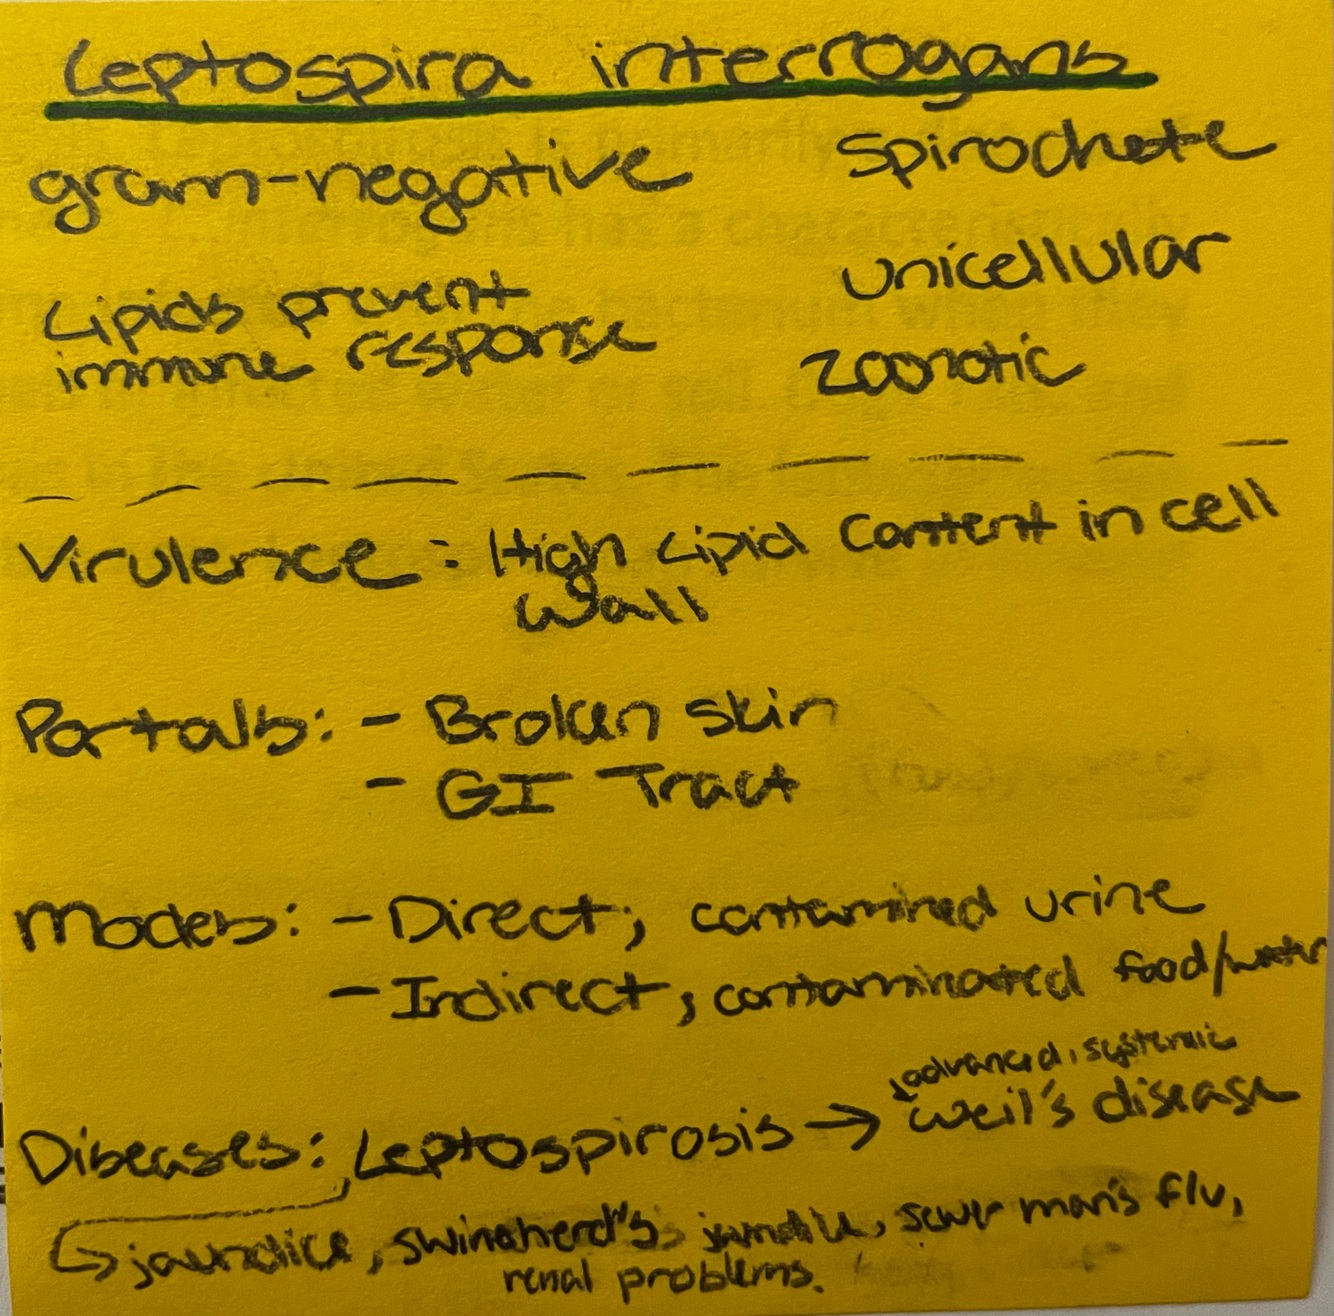 Leptospira interrogans
gram-negative
Spirochete
Lipids prevent
immune response
Unicellular
Zoonotic
Virulence: High Lipid Content in cell
Wall
Portals: - Broken skin
- GI Tract
Modes: - Direct; contamined urine
- Indirect; contaminated food/water
advanced, systemic
Diseases: Leptospirosis → Weil's disease
↳ jaundice, swineherd's jaundice, sewer man's flu,
renal problems.